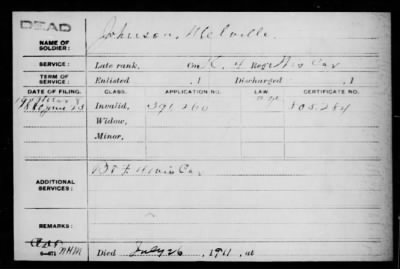 DEAD
NAME OF SOLDIER: Johnson, Melville.
SERVICE: Late rank, Co. K, 4 Reg't Wis Cav
TERM OF SERVICE: Enlisted , 1 Discharged , 1
DATE OF FILING. CLASS. APPLICATION NO. LAW. CERTIFICATE NO.
Invalid, 391260 805,284
Widow,
Minor,
ADDITIONAL SERVICES:
REMARKS:
Died July 26, 1911, at